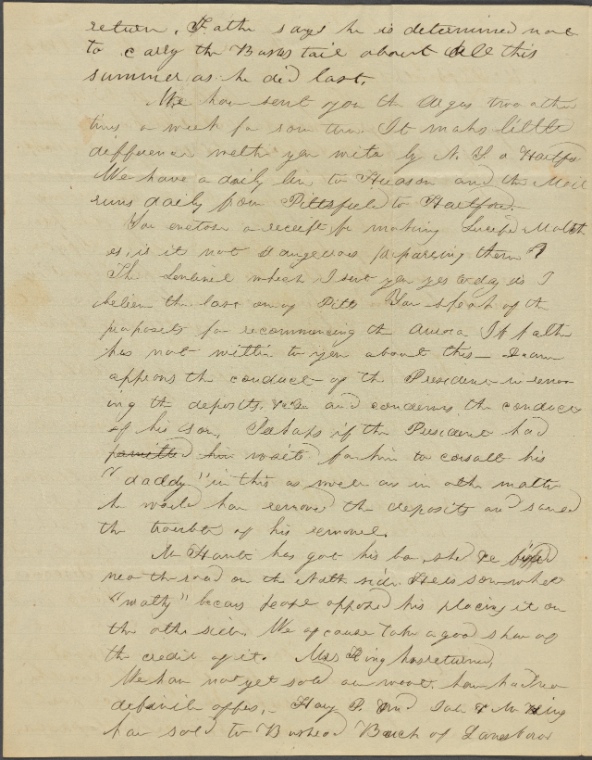 return, Father says he is determined not
to carry the Buss tail about all this
summer as he did last.
We have sent you the Argus two other
times a week for some time. It makes little
difference wether you write by N. Y or Hartfd
We have a daily line to Hudson and the Mail
runs daily from Pittsfield to Hartford.—
You enclose a receipt for making Lucifer Match
es, is it not dangerous preparing them?
The Sentinel which I sent you yesterday is I
beleive the last Pitts You speak of the
proposits for recommencing the Aurora If father
has not written to you about this—
approves the conduct of the President in remov
ing the deposits, &c and condemns the conduct
of his son, Perhaps if the President had
permitted him waited for him to consult his
"daddy" in this as well as in other matters
he would have removed the deposits and saved
the trouble of his removal.
Mr has got his &c
near the road on the North side He is somewhat
"wrathy" because people opposed his placing it on
the other side. We of course take a good share of
the credit of it. Mrs King has returned,
We have not yet sold our wool, have had no
definite offers, — Hay P. and & Mr King
have sold to of Lanesboro